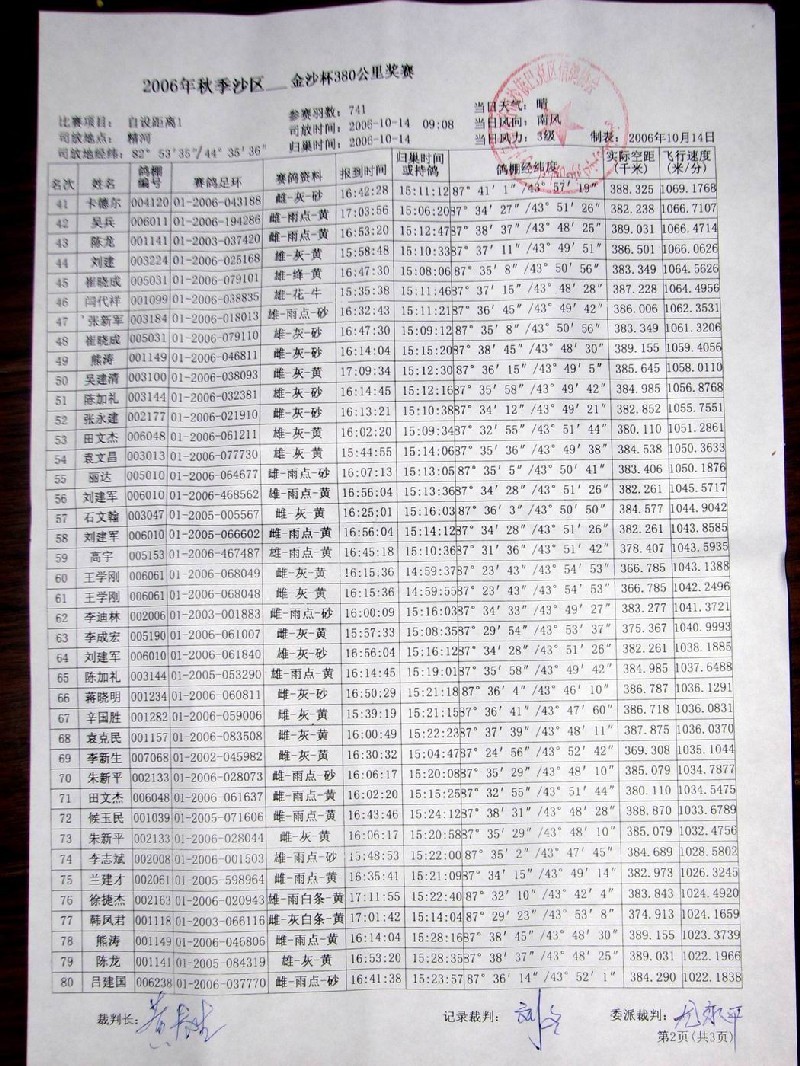 2006年秋季沙区__金沙杯380公里奖赛
比赛项目: 自设距离1 参赛羽数: 741 当日天气: 晴
司放地点: 精河 司放时间: 2006-10-14 09:08 当日风向: 南风
司放地经纬: 82° 53′35″/44° 35′36″ 归巢时间: 2006-10-14 当日风力: 3级 制表: 2006年10月14日
名次 姓名 鸽棚编号 赛鸽足环 赛鸽资料 报到时间 归巢时间或持鸽 鸽棚经纬度 实际空距(千米) 飞行速度(米/分)
41 卡德尔 004120 01-2006-043188 雌-灰-砂 16:42:28 15:11:12 87° 41′ 1″/43° 57′ 19″ 388.325 1069.1768
42 吴兵 006011 01-2006-194286 雌-雨点-黄 17:03:56 15:06:20 87° 34′ 27″/43° 51′ 26″ 382.238 1066.7107
43 陈龙 001141 01-2003-037420 雌-雨点-黄 16:53:20 15:12:47 87° 38′ 37″/43° 48′ 25″ 389.031 1066.4714
44 刘建 003224 01-2006-025168 雄-灰-黄 15:58:48 15:10:33 87° 37′ 11″/43° 49′ 51″ 386.501 1066.0626
45 崔晓成 005031 01-2006-079101 雄-绛-黄 16:47:30 15:08:06 87° 35′ 8″/43° 50′ 56″ 383.349 1064.5626
46 闫代祥 001099 01-2006-038835 雄-花-牛 15:35:38 15:11:46 87° 37′ 15″/43° 48′ 28″ 387.228 1064.4956
47 张新军 003184 01-2006-018013 雄-雨点-砂 16:32:43 15:11:21 87° 36′ 45″/43° 49′ 42″ 386.006 1062.3531
48 崔晓成 005031 01-2006-079110 雄-灰-砂 16:47:30 15:09:12 87° 35′ 8″/43° 50′ 56″ 383.349 1061.3206
49 熊涛 001149 01-2006-046811 雌-灰-砂 16:14:04 15:15:20 87° 38′ 45″/43° 48′ 30″ 389.155 1059.4056
50 吴建清 003100 01-2006-038093 雌-灰-黄 17:09:34 15:12:30 87° 36′ 13″/43° 49′ 5″ 385.645 1058.0110
51 陈加礼 003144 01-2006-032381 雌-灰-砂 16:14:45 15:12:16 87° 35′ 58″/43° 49′ 42″ 384.985 1056.8768
52 张永建 002177 01-2006-021910 雄-灰-砂 16:13:21 15:10:38 87° 34′ 12″/43° 49′ 21″ 382.852 1055.7551
53 田文杰 006048 01-2006-061211 雌-灰-黄 16:02:20 15:09:34 87° 32′ 55″/43° 51′ 44″ 380.110 1051.2861
54 袁文昌 003013 01-2006-077730 雄-灰-黄 15:44:55 15:14:06 87° 35′ 36″/43° 49′ 38″ 384.538 1050.3633
55 丽达 005010 01-2006-064677 雌-雨点-砂 16:07:13 15:13:05 87° 35′ 5″/43° 50′ 41″ 383.406 1050.1876
56 刘建军 006010 01-2006-468562 雄-雨点-黄 16:56:04 15:13:36 87° 34′ 28″/43° 51′ 26″ 382.261 1045.5717
57 石文翰 003047 01-2005-005567 雌-灰-黄 16:25:01 15:16:03 87° 36′ 3″/43° 50′ 50″ 384.577 1044.9042
58 刘建军 006010 01-2005-066602 雌-雨点-黄 16:56:04 15:14:12 87° 34′ 28″/43° 51′ 26″ 382.261 1043.8585
59 高宇 005153 01-2006-467487 雄-雨点-黄 16:45:18 15:10:36 87° 31′ 36″/43° 51′ 42″ 378.407 1043.5935
60 王学刚 006061 01-2006-068049 雌-灰-黄 16:15:36 14:59:37 87° 23′ 43″/43° 54′ 53″ 366.785 1043.1388
61 王学刚 006061 01-2006-068048 雌-灰-黄 16:15:36 14:59:55 87° 23′ 43″/43° 54′ 53″ 366.785 1042.2496
62 李迪林 002006 01-2003-001883 雌-雨点-砂 16:00:09 15:16:03 87° 34′ 33″/43° 49′ 27″ 383.277 1041.3721
63 李成宏 005190 01-2006-061007 雌-灰-黄 15:57:33 15:08:35 87° 29′ 54″/43° 53′ 37″ 375.367 1040.9993
64 刘建军 006010 01-2006-061840 雌-灰-砂 16:56:04 15:16:12 87° 34′ 28″/43° 51′ 26″ 382.261 1038.1885
65 陈加礼 003144 01-2005-053290 雌-雨点-黄 16:14:45 15:19:01 87° 35′ 58″/43° 49′ 42″ 384.985 1037.6488
66 蒋晓明 001234 01-2006-060811 雌-灰-砂 16:50:29 15:21:18 87° 36′ 4″/43° 46′ 10″ 386.787 1036.1291
67 辛国胜 001282 01-2006-059006 雌-灰-黄 15:39:19 15:21:15 87° 36′ 41″/43° 47′ 60″ 386.718 1036.0831
68 袁克民 001157 01-2006-083508 雌-灰-黄 16:00:49 15:22:23 87° 37′ 39″/43° 48′ 11″ 387.875 1036.0370
69 李新生 007068 01-2002-045982 雌-灰-黄 16:30:32 15:04:47 87° 24′ 56″/43° 52′ 42″ 369.308 1035.1044
70 朱新平 002133 01-2006-028073 雌-雨点-砂 16:06:17 15:20:08 87° 35′ 29″/43° 48′ 10″ 385.079 1034.7877
71 田文杰 006048 01-2006-061637 雌-雨点-砂 16:02:20 15:15:25 87° 32′ 55″/43° 51′ 44″ 380.110 1034.5475
72 侯玉民 001039 01-2005-071606 雌-雨点-黄 16:43:46 15:24:12 87° 38′ 31″/43° 48′ 28″ 388.870 1033.6789
73 朱新平 002133 01-2006-028044 雌-灰-黄 16:06:17 15:20:58 87° 35′ 29″/43° 48′ 10″ 385.079 1032.4756
74 李志斌 002008 01-2006-001503 雄-雨点-砂 15:48:53 15:22:00 87° 35′ 2″/43° 47′ 45″ 384.689 1028.5802
75 兰建才 002061 01-2005-598964 雄-雨点-砂 16:35:41 15:21:09 87° 34′ 15″/43° 49′ 14″ 382.973 1026.3245
76 徐捷杰 002163 01-2006-020943 雄-雨白条-黄 17:11:55 15:22:40 87° 32′ 10″/43° 42′ 4″ 383.843 1024.4920
77 韩风君 001118 01-2003-066116 雌-灰白条-黄 17:01:42 15:14:04 87° 29′ 23″/43° 53′ 8″ 374.913 1024.1659
78 熊涛 001149 01-2006-046806 雌-雨点-黄 16:14:04 15:28:16 87° 38′ 45″/43° 48′ 30″ 389.155 1023.3739
79 陈龙 001141 01-2005-084319 雌-灰-黄 16:53:20 15:28:35 87° 38′ 37″/43° 48′ 25″ 389.031 1022.1966
80 吕建国 006238 01-2006-037770 雌-雨点-砂 16:41:38 15:23:57 87° 36′ 14″/43° 52′ 1″ 384.290 1022.1838
裁判长: 记录裁判: 委派裁判:
第2页(共3页)